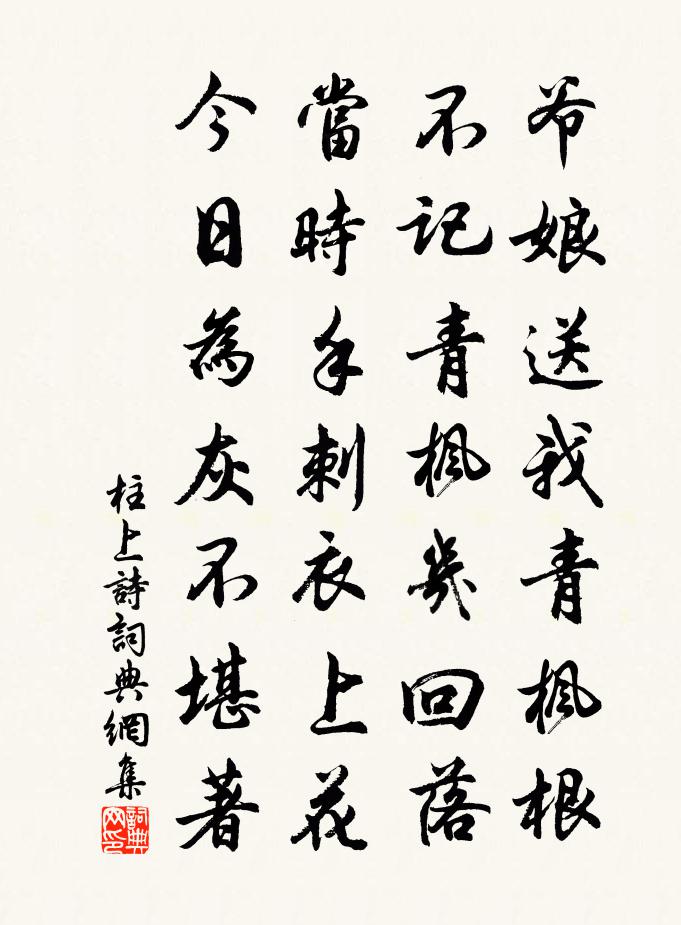 爷娘送我青楓根
不记青楓幾回落
當時手刺衣上花
今日為灰不堪著
柱上詩詞典網集
詞典网印